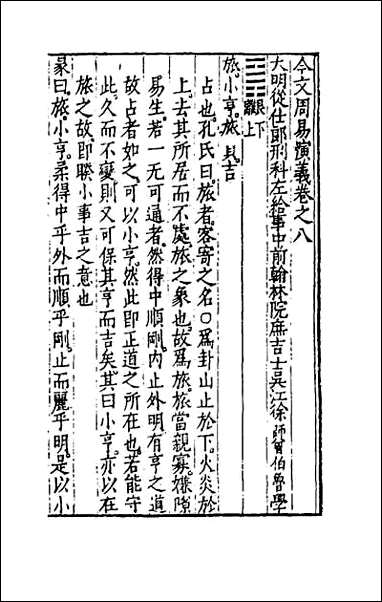 今文周易演義卷之八
大明從仕郎刑科左給事中前翰林院庶吉士吳江徐師曾伯魯學
艮下離上
旅小亨旅貞吉
占也孔氏曰旅者客寄之名○爲卦山止於下火炎於
上去其所居而不處旅之象也故爲旅旅當親寡嫌隙
易生若一无可通者然得中順剛內止外明有亨之道
故占者如之可以小亨然此即正道之所在也若能守
此久而不變則又可保其亨而吉矣其曰小亨亦以在
旅之故即睽小事吉之意也
彖曰旅小亨柔得中乎外而順乎剛止而麗乎明是以小